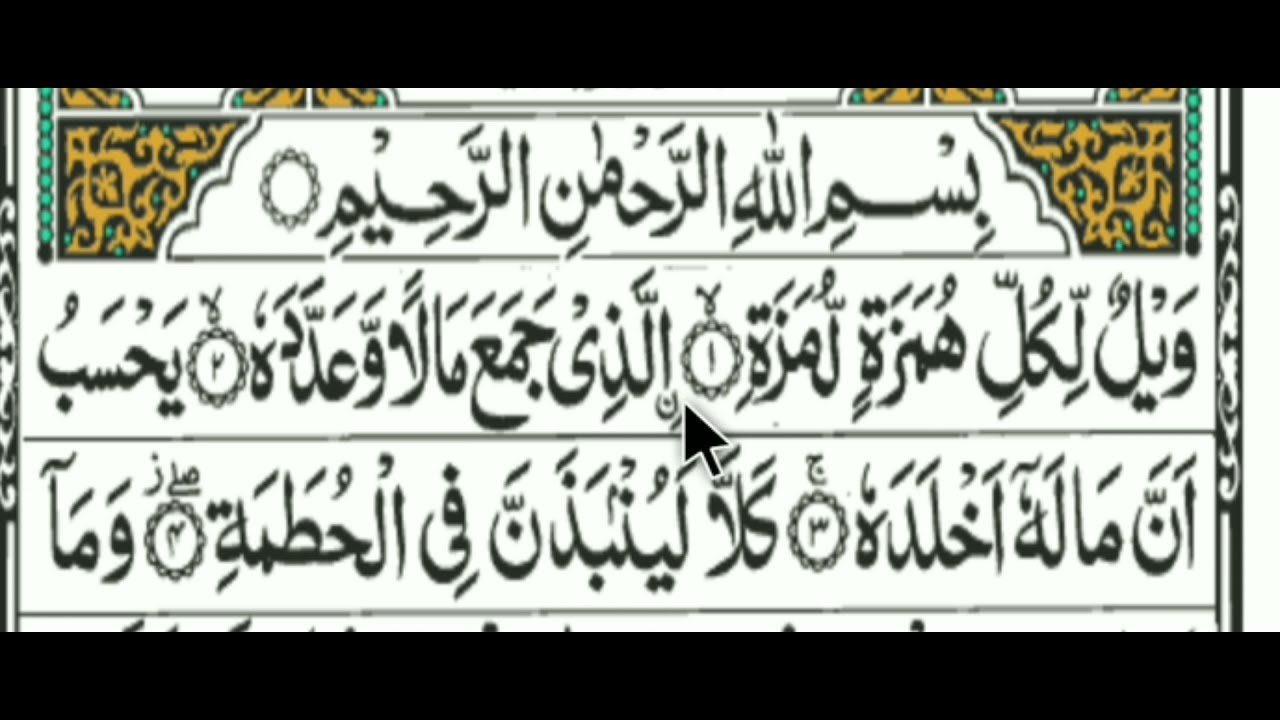 بِسْمِ اللّٰهِ الرَّحْمٰنِ الرَّحِیْمِ
وَیْلٌ لِّكُلِّ هُمَزَةٍ لُّمَزَةِۙ ﴿۱﴾ اِ۟لَّذِیْ جَمَعَ مَالًا وَّعَدَّدَهٗۙ ﴿۲﴾ یَحْسَبُ
اَنَّ مَالَهٗۤ اَخْلَدَهٗۚ ﴿۳﴾ كَلَّا لَیُنْۢبَذَنَّ فِی الْحُطَمَةِؗۖ ﴿۴﴾ وَمَاۤ